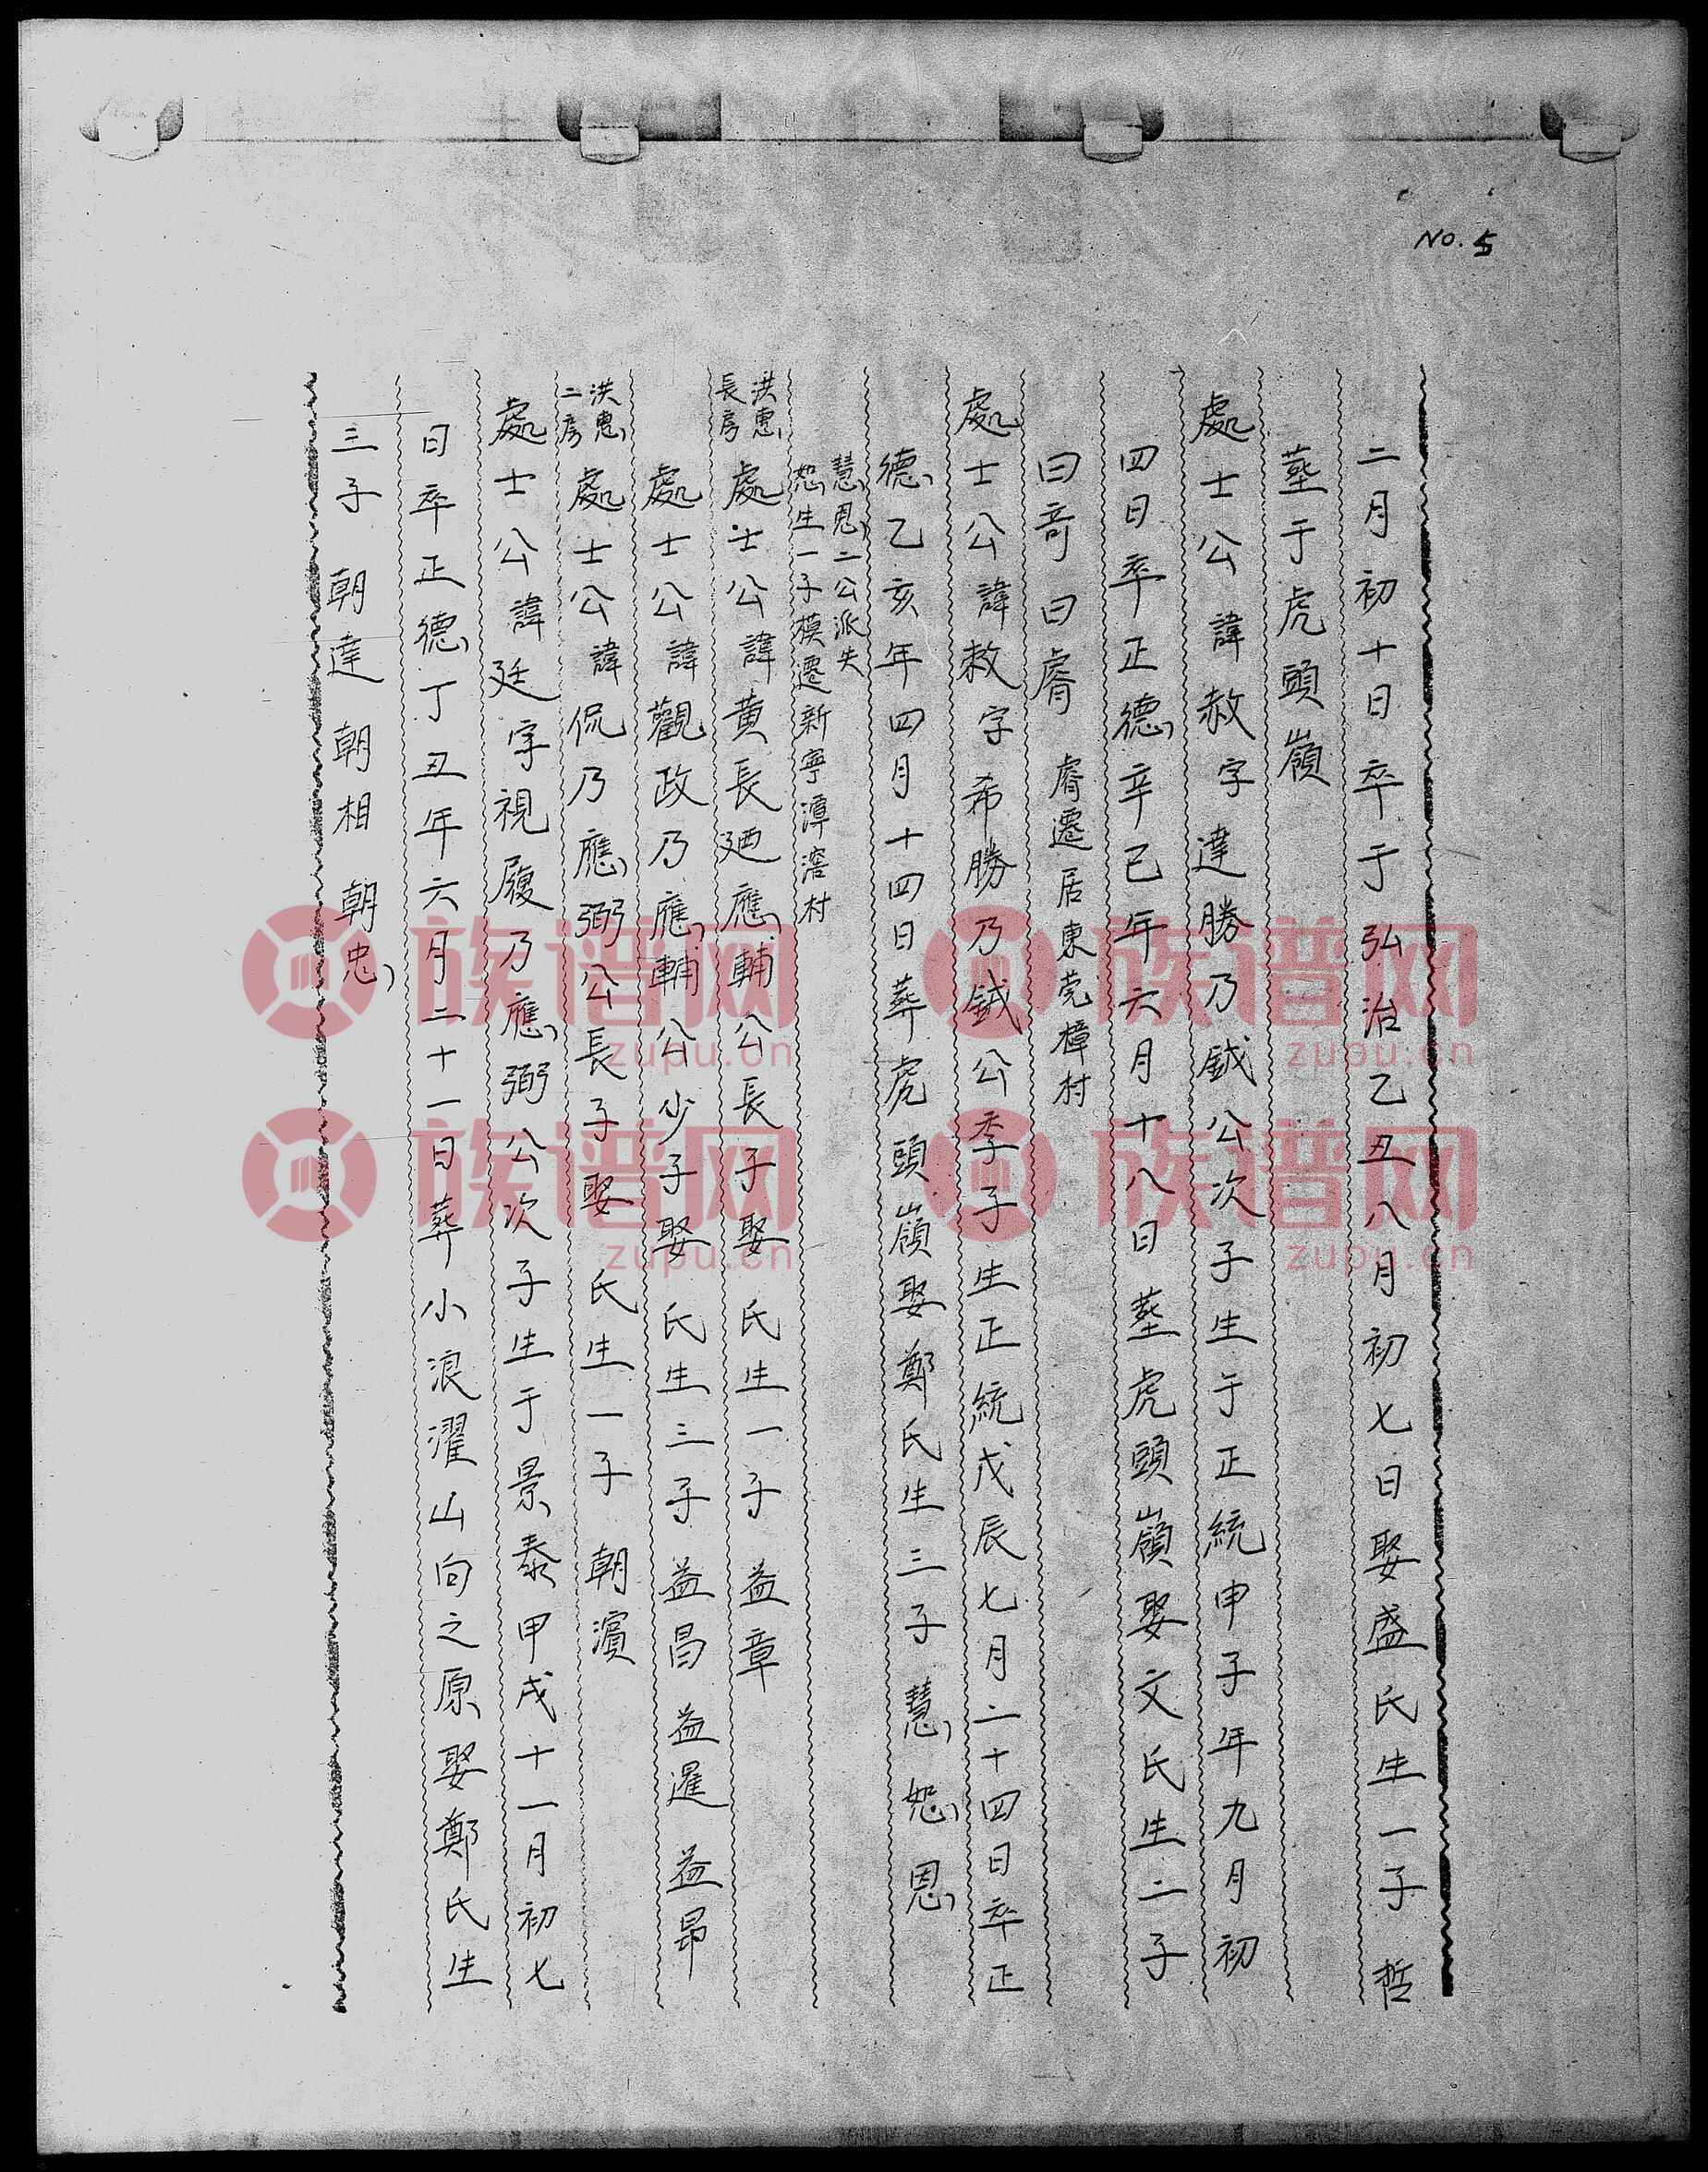 NO. 5
二月初十日卒于弘治乙丑八月初七日娶盛氏生一子 哲
塟于虎頭嶺
處士公諱赦字達勝乃鉞公次子生于正統申子年九月初
四日卒正德辛已年六月十八日塟虎頭嶺娶文氏生二子
曰竒曰睿 睿遷居東莞樟村
處士公諱救字希勝乃鉞公季子生正統戊辰七月二十四日卒正
德乙亥年四月十四日葬虎頭嶺娶鄭氏生三子慧恕恩
慧恩二公派失
恕生一子模遷新寧潭滘村
洪惠
長房
處士公諱黄長廼應輔公長子娶 氏生一子益章
處士公諱觀政乃應輔公少子娶 氏生三子益昌益暹益昂
洪惠
二房
處士公諱侃乃應弼公長子娶 氏生一子 朝濱
處士公諱廷字視履乃應弼公次子生于景泰甲戌十一月初七
日卒正德丁丑年六月二十一日葬小浪濯山向之原娶鄭氏生
三子 朝達 朝相 朝忠
族谱网
zupu.cn
族谱网
zupu.cn
族谱网
zupu.cn
族谱网
zupu.cn